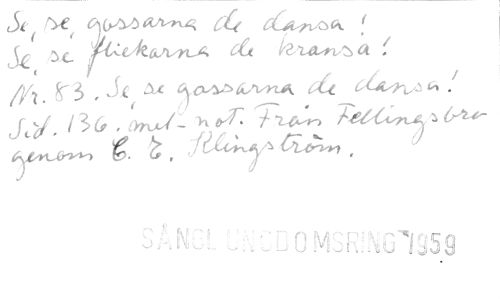 Se, se, gossarna de dansa!
Se, se flickorna de kransa!
Nr. 83. Se, se gossarna de dansa!
Sid. 136. mel-not. Från Fellingsbro
genom C. E. Klingström.
SÅNGL UNGDOMSRING 1959